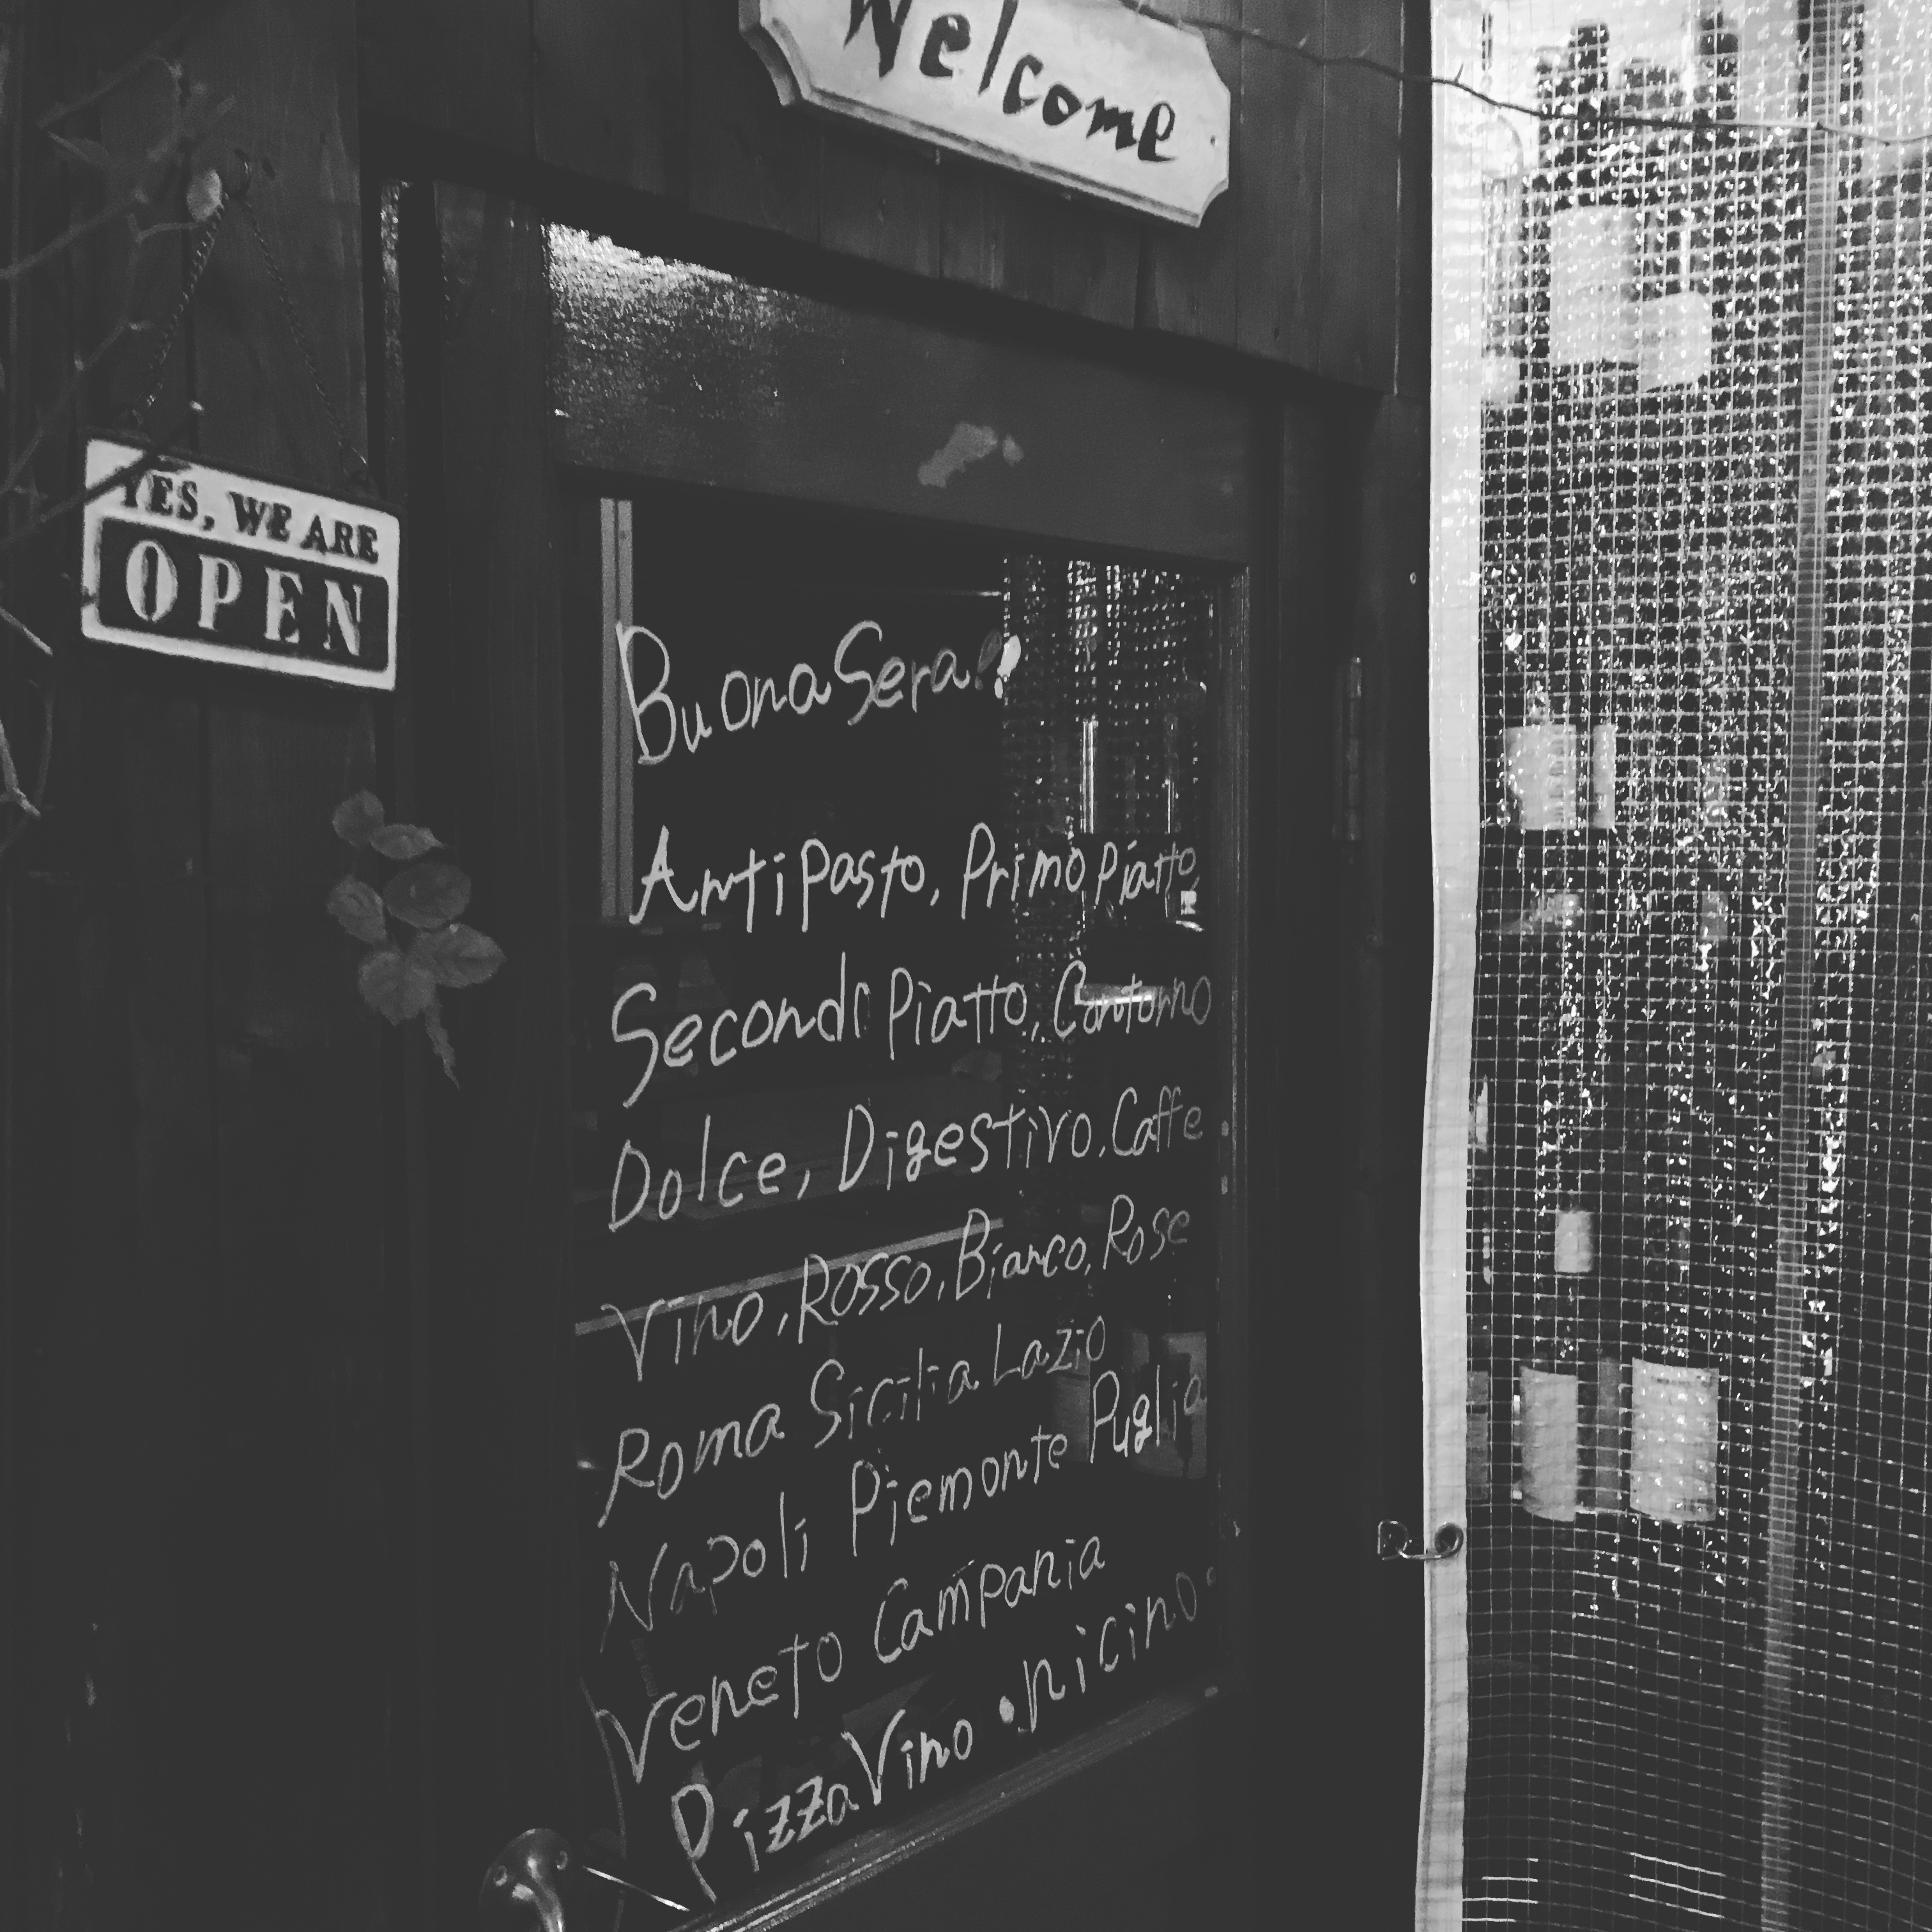 Welcome
YES, WE ARE
OPEN
Buona Sera!!
Antipasto, Primo Piatto,
Secondi Piatto, Contorno
Dolce, Digestivo, Caffe
Vino, Rosso, Bianco, Rose
Roma Sicilia Lazio
Napoli Piemonte Puglia
Veneto Campania
Pizza Vino • nicino •